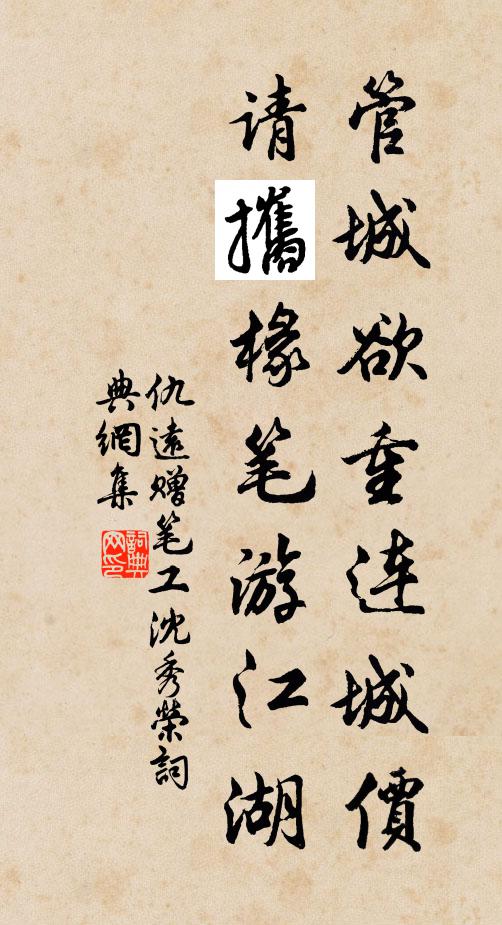 管城欲重连城價
请攜椽笔游江湖
仇遠赠笔工沈秀榮詞
典網集
詞典网印